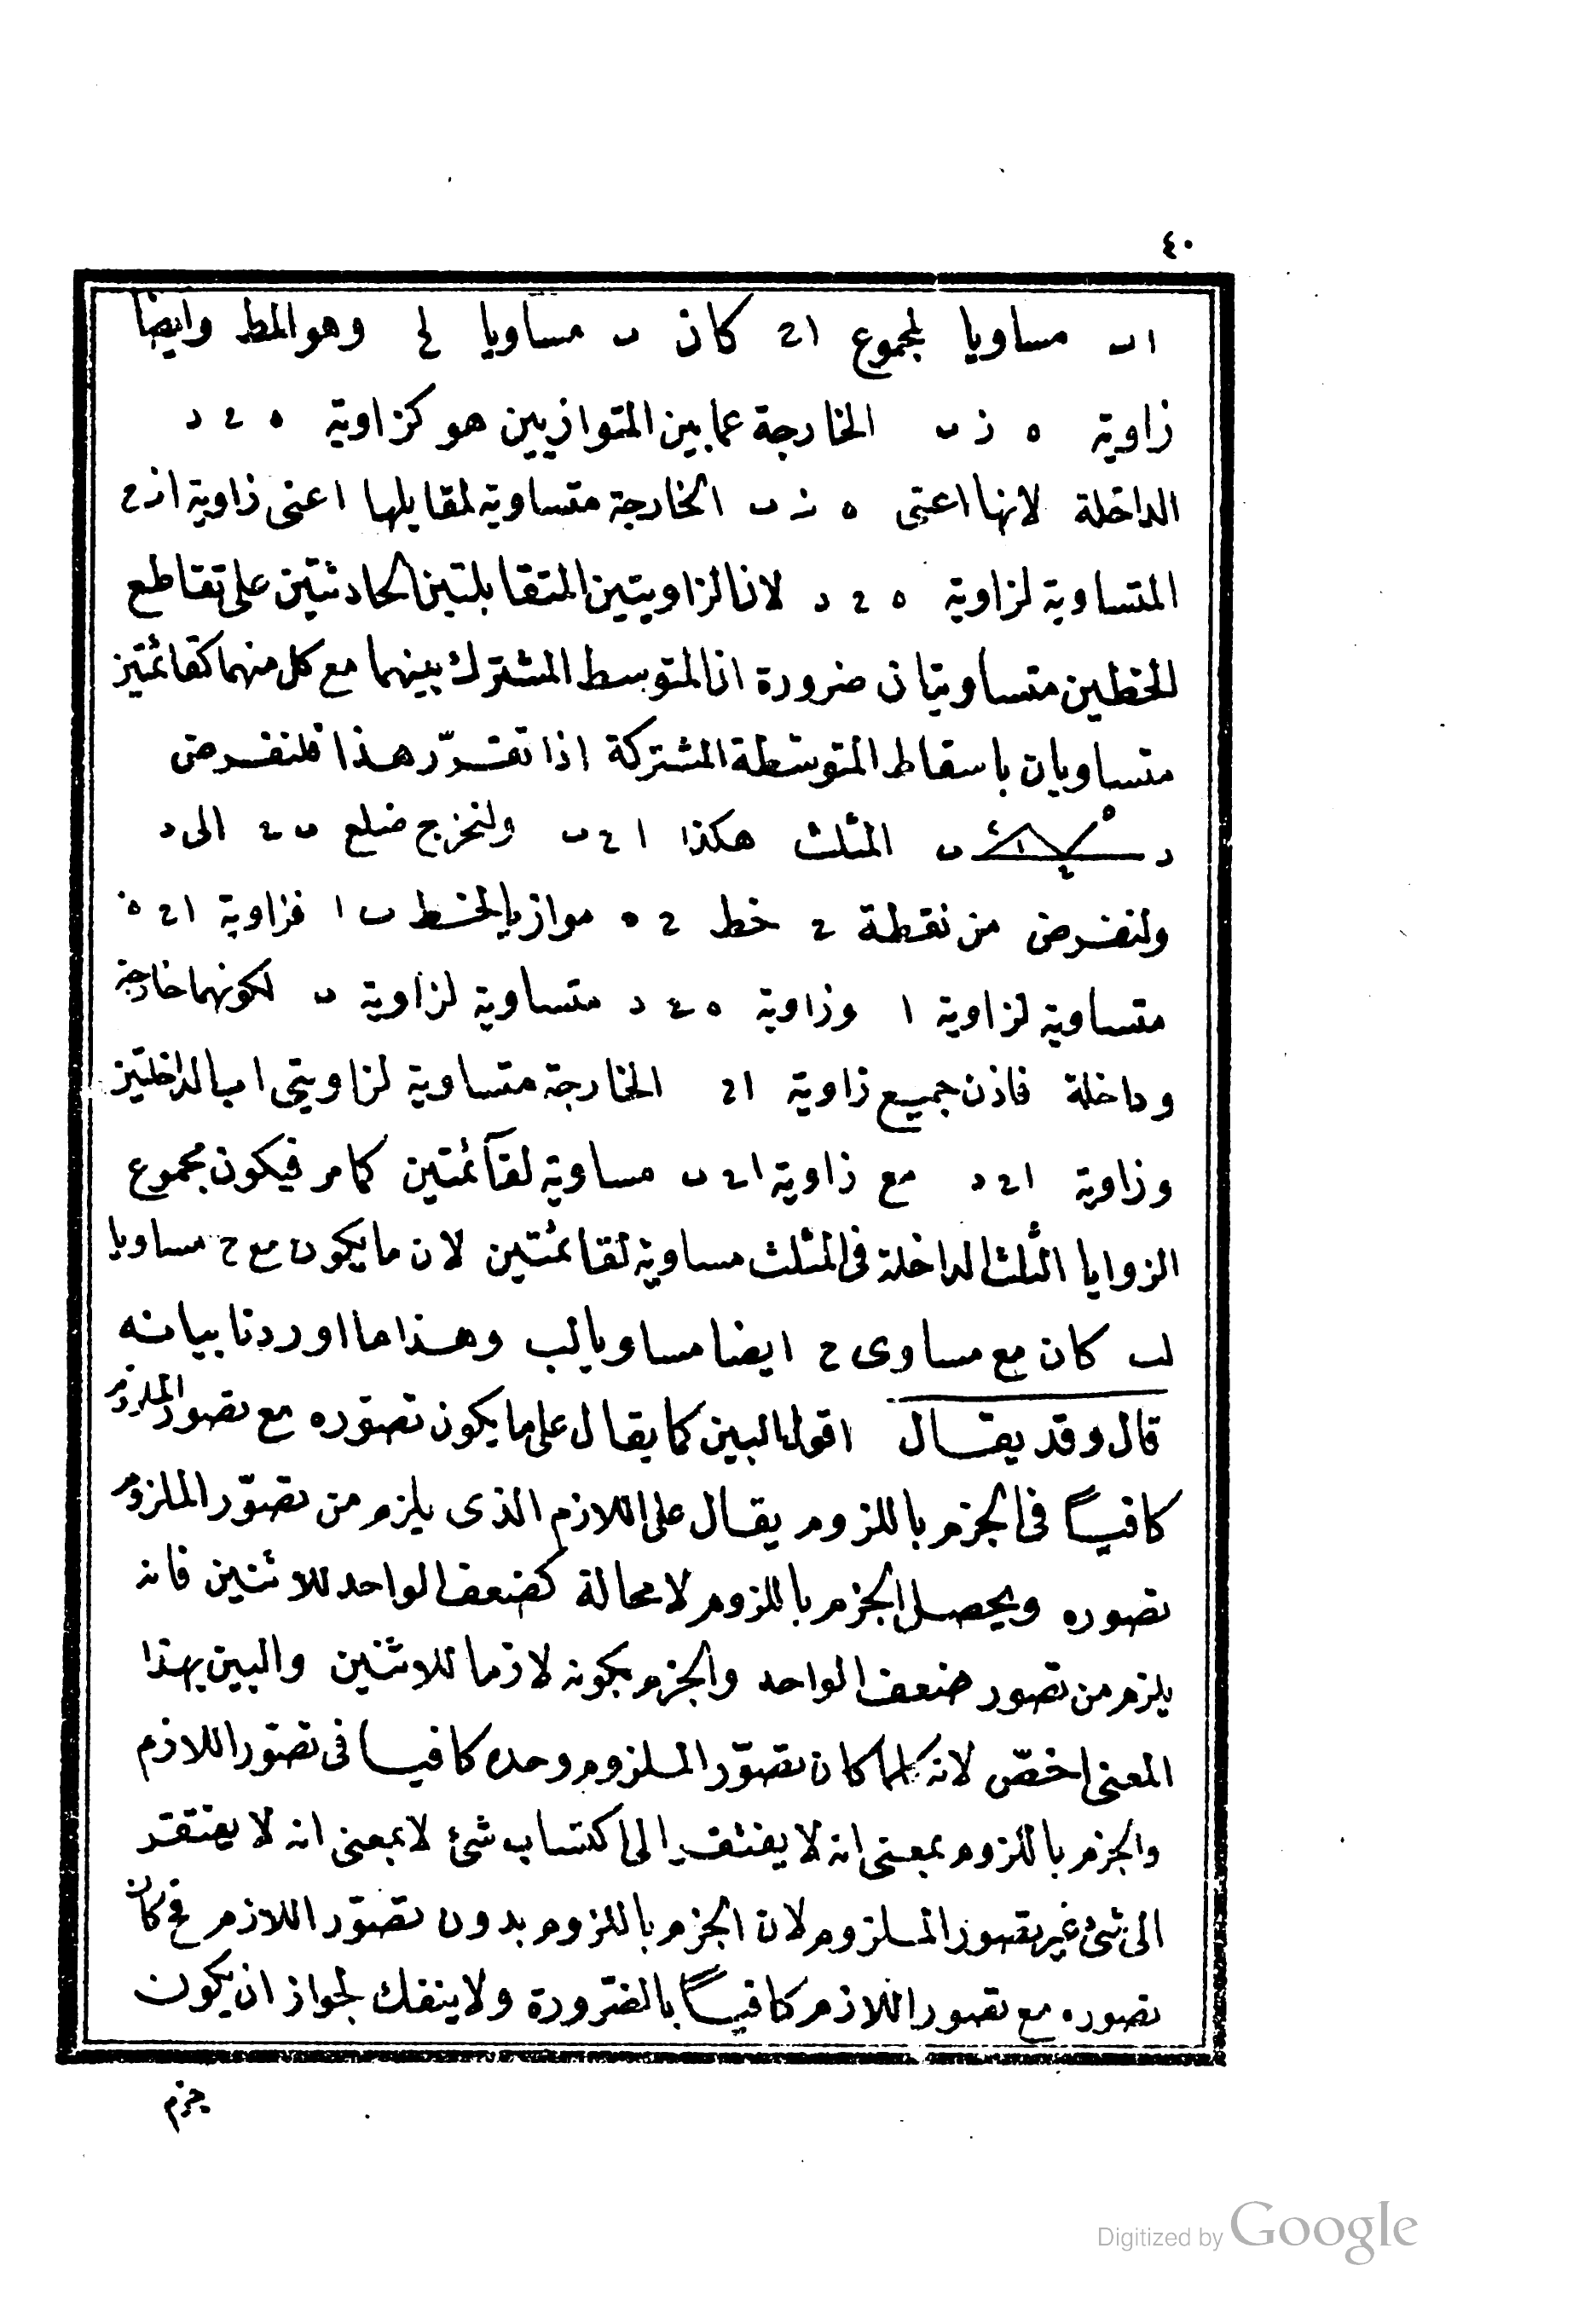 ٤٠
ا ب مساويا لمجموع ا ح كان ب مساويا لح وهو المط وايضا
زاوية ه ز ب الخارجة عما بين المتوازيين هو كزاوية ه ح د
الداخلة لانها اعنى ه ز ب الخارجة متساوية لمقابلها اعنى زاوية ا ز ح
المتساوية لزاوية ه ح د لان الزاويتين المتقابلتين الحادثتين على تقاطع
الخطين متساويتان ضرورة ان المتوسط المشترك بينهما مع كل منهما كقائمتين
متساويان باسقاط المتوسطة المشتركة اذا تقرّر هذا فلنفرض
المثلث هكذا ا ح ب ولنخرج ضلع ب ح الى د
د ه ا ح ب
ولنفرض من نقطة ح خط ح ه موازيا لخط ب ا فزاوية ا ح ه
متساوية لزاوية ا وزاوية ه ح د متساوية لزاوية ب لكونهما خارجة
وداخلة فاذن جميع زاوية ا ح الخارجة متساوية لزاويتى ا ب الداخلتين
وزاوية ا ح د مع زاوية ا ح ب مساوية لقآئمتين كما مر فيكون مجموع
الزوايا الثلث الداخلة فى المثلث مساوية لقائمتين لان ما يكون مع ح مساويا
لب كان مع مساوى ح ايضا مساويا لب وهذا ما اوردنا بيانه
قال وقد يقال اقول البين كما يقال على ما يكون تصوّره مع تصور الملزوم
كافياً فى الجزم باللزوم يقال على اللازم الذى يلزم من تصوّر الملزوم
تصوره ويحصل الجزم باللزوم لا محالة كضعف الواحد للاثنين فانه
يلزم من تصور ضعف الواحد والجزم بكونه لازما للاثنين والبين بهذا
المعنى اخصّ لانه كلما كان تصوّر الملزوم وحده كافيا فى تصوّر اللازم
والجزم باللزوم بمعنى انه لا يفتقر الى اكتساب شئ لا بمعنى انه لا يفتقر
الى شئ غير تصور الملزوم لان الجزم باللزوم بدون تصوّر اللازم فح كان
تصوره مع تصور اللازم كافياً بالضرورة ولا ينفك لجواز ان يكون
جزم
Digitized by Google